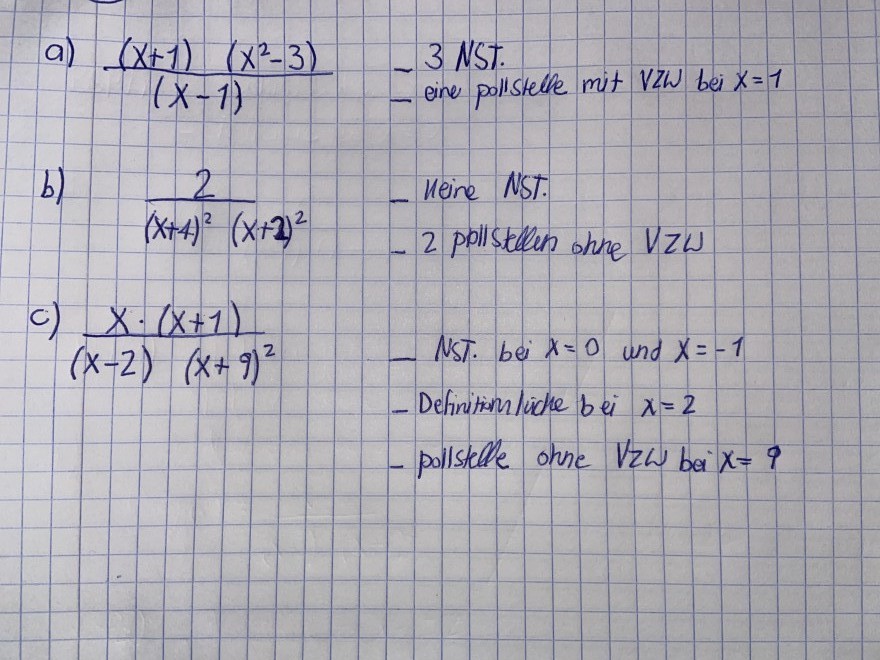 a) (x+1) (x²-3) / (x-1)
- 3 NST.
- eine pollstelle mit VZW bei x=1
b) 2 / (x+4)² (x+2)²
- keine NST.
- 2 pollstellen ohne VZW
c) x·(x+1) / (x-2) (x+9)²
- NST. bei x=0 und x=-1
- Definitionslücke bei x=2
- pollstelle ohne VZW bei x=9